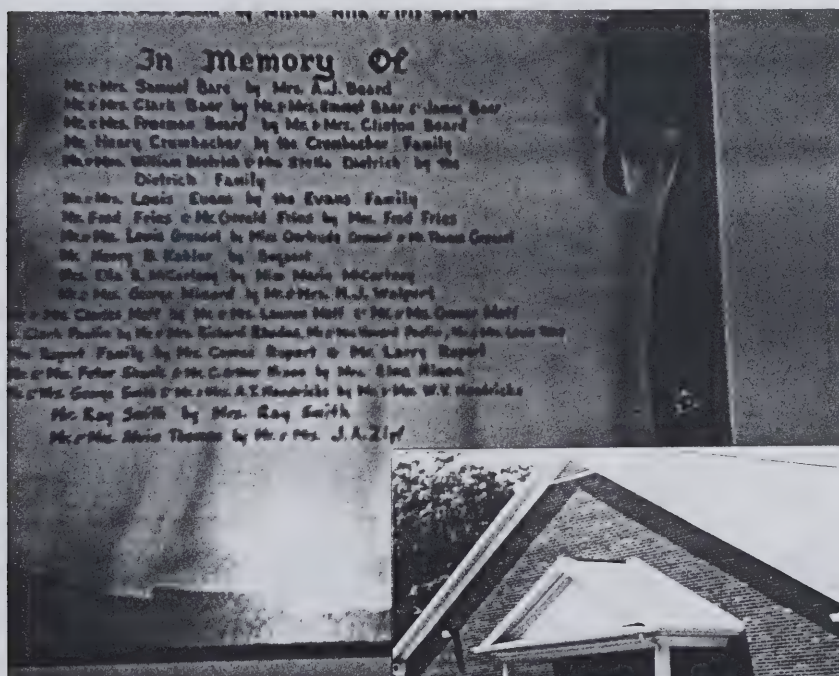 by Misses Nina & Iris Beard
In Memory Of
Mr. & Mrs. Samuel Bare by Mrs. A.J. Beard
Mr. & Mrs. Clark Baer by Mr. & Mrs. Emmet Baer & James Baer
Mr. & Mrs. Freeman Beard by Mr. & Mrs. Clinton Beard
Mr. Henry Crumbacher by the Crumbacher Family
Mr. & Mrs. William Dietrich & Mrs. Stella Dietrich by the
Dietrich Family
Mr. & Mrs. Louis Evans by the Evans Family
Mr. Fred Fries & Mr. Gerald Fries by Mrs. Fred Fries
Mr. & Mrs. Louis Gressel by Miss Gertrude Gressel & Mr. Thomas Gressel
Mr. Henry B. Kahler by Bequest
Mrs. Ella R. McCartney by Miss Marie McCartney
Mr. & Mrs. George Minard by Mr. & Mrs. H.J. Walpert
& Mrs. Charles Moff by Mr. & Mrs. Lauren Moff & Mr. & Mrs. Homer Moff
Clark by Mr. & Mrs. Richard Mr. & Mrs. Howard Mr. & Mrs. Louis
The Rupert Family by Mrs. Comes Rupert & Mr. Larry Rupert
Mr. & Mrs. Peter Shank & Mr. Gardner Nixon by Mrs. Elma Nixon
Mr. & Mrs. George Smith & Mr. & Mrs. A.Z. Hendricks by Mr. & Mrs. W.V. Hendricks
Mr. Ray Smith by Mrs. Ray Smith
Mr. & Mrs. Alvin Thomas by Mr. & Mrs. J.A. Zipf